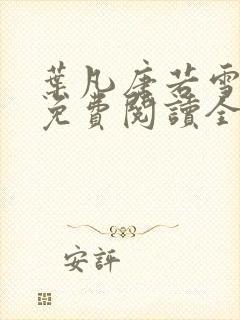 葉凡唐若雪
免費閱讀全
安評